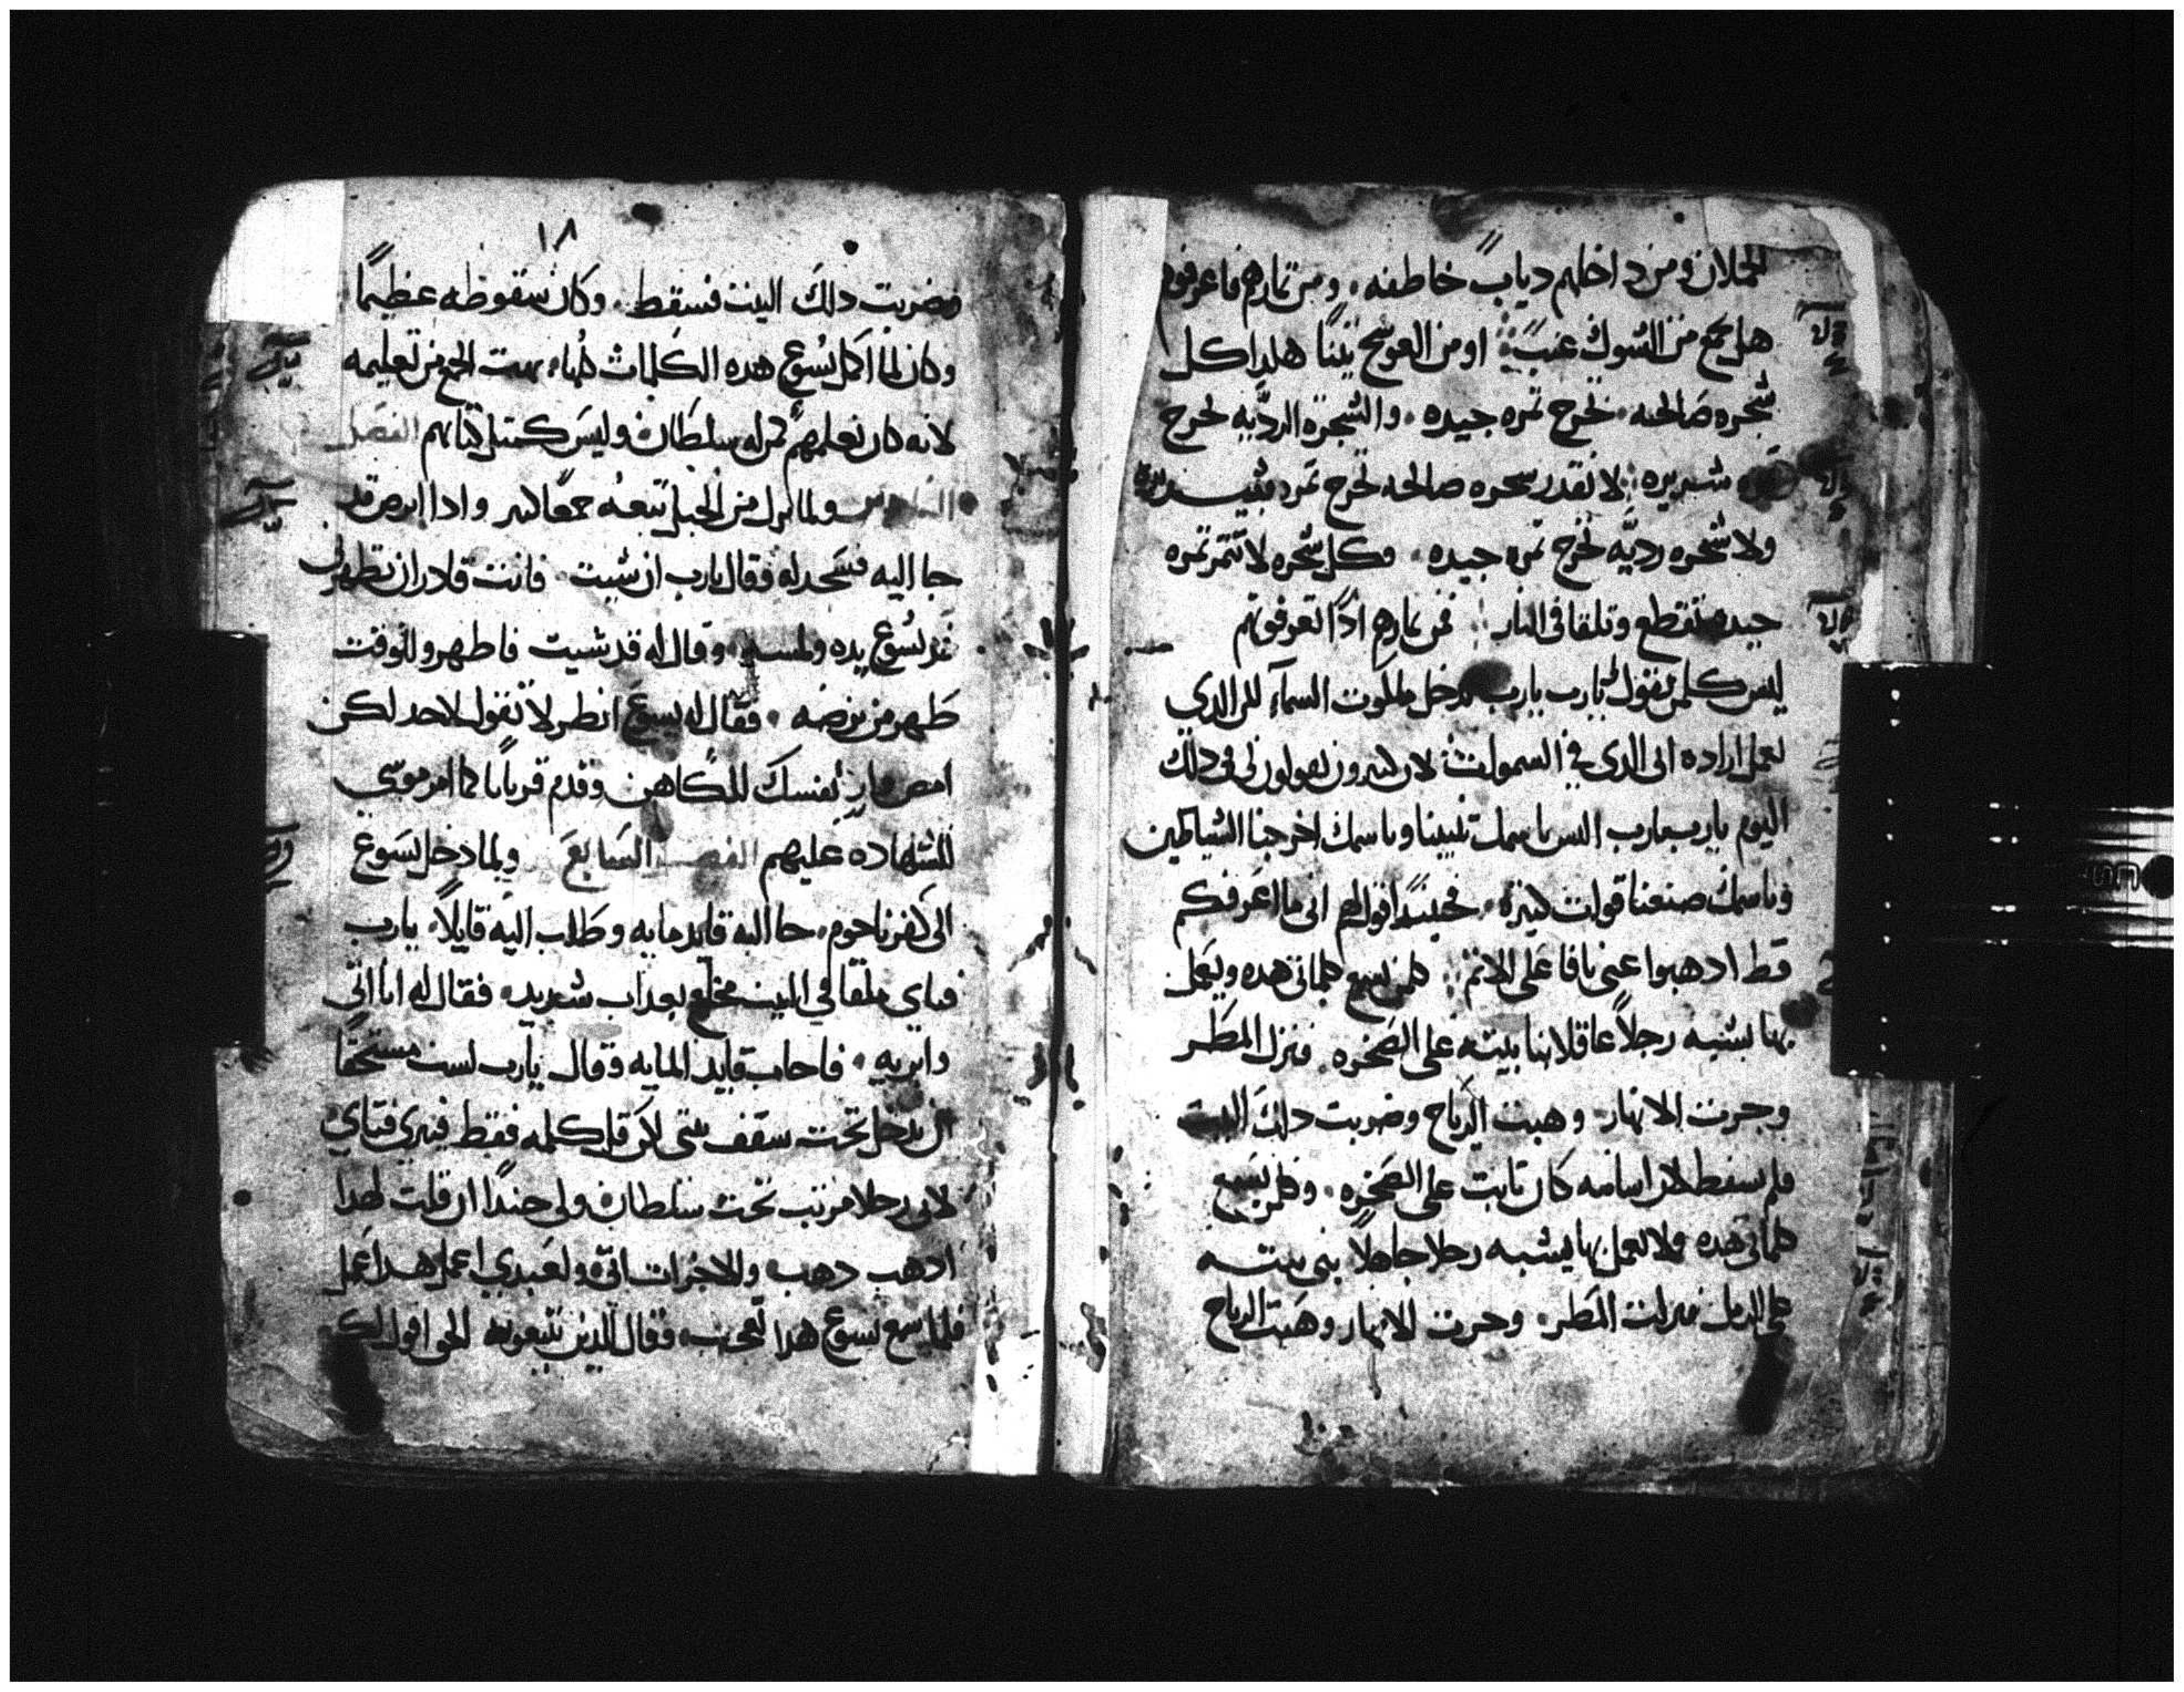 الحملان ومن داخلهم دياب خاطفه، ومن تمارهم فاعرفوهم
هل يجمع من الشوك عنب او من العوسج تينا هلدا كل
شجره صالحه، تخرج تمره جيده، والشجره الرديه تخرج
شريره لا تقدر شجره صالحه تخرج تمره
ولا شجره رديه تخرج تمره جيده، وكل شجره لا تتمر تمره
جيده تقطع وتلقا في النار فمن تمارهم ادًا تعرفونهم
ليس كلمن يقول يارب يارب يدخل ملكوت السمآء لكن الدي
يعمل اراده ابي الدي في السموات لان كتيرون يقولون لي في دلك
اليوم يارب يارب اليس باسمك تنبينا وباسمك اخرجنا الشياطين
وباسمك صنعنا قوات كتيره، فحينيدًا اقول لهم اني ما اعرفكم
قط ادهبوا عني يا فاعلي الاتم كلمن يسمع كلماتي هده ويعمل
بها يشبه رجلاً عاقلا بنا بيته على الصخره، فنزل المطر
وجرت الانهار وهبت الرياح وضربت دلك البيت
فلم يسقط لان اساسه كان تابت على الصخره، وكلمن يسمع
كلماتي هده ولا يعمل بها يشبه رجلا جاهلاً بنى بيته
على الرمل فنزلت المطر، وجرت الانهار وهبت الرياح
١٨
وضربت دلك البيت فسقط، وكان سقوطه عظيمًا
وكان لما اكمل يسوع هده الكلمات كلها، بهت الجمع من تعليمه
لانه كان يعلمهم كمن له سلطان وليس ككتبتهم الفصل
السادس ولما نزل من الجبل تبعه جمعًا كتير وادا ابرص قد
جا اليه فسجد له وقال يارب ان شيت، فانت قادر ان تطهرني
فمد يسوع يده ولمسه، وقال له قد شيت فاطهر وللوقت
طهر من برصه، فقال له يسوع انظر لا تقول لاحد لكن
امض وار نفسك للكاهن وقدم قربانا كما امر موسي
للشهاده عليهم الفصل السابع ولما دخل يسوع
الى كفرناحوم، جا اليه قايد مايه وطلب اليه قايلاً، يارب
فتاي ملقا في البيت مخلع بعداب شديد، فقال له انا اتي
وابريه، فاجاب قايد المايه وقال يارب لست مستحقًا
ان تدخل تحت سقف بيتي لكن قل كلمه فقط فيبري فتاي
لاني رجلا مرتب تحت سلطان ولي جندًا ان قلت لهدا
ادهب دهب، وللاخر ات اتى، ولعبدي اعمل هدا عمل
فلما سمع يسوع هدا تعجب، وقال للدين يتبعونه الحق اقول لكم